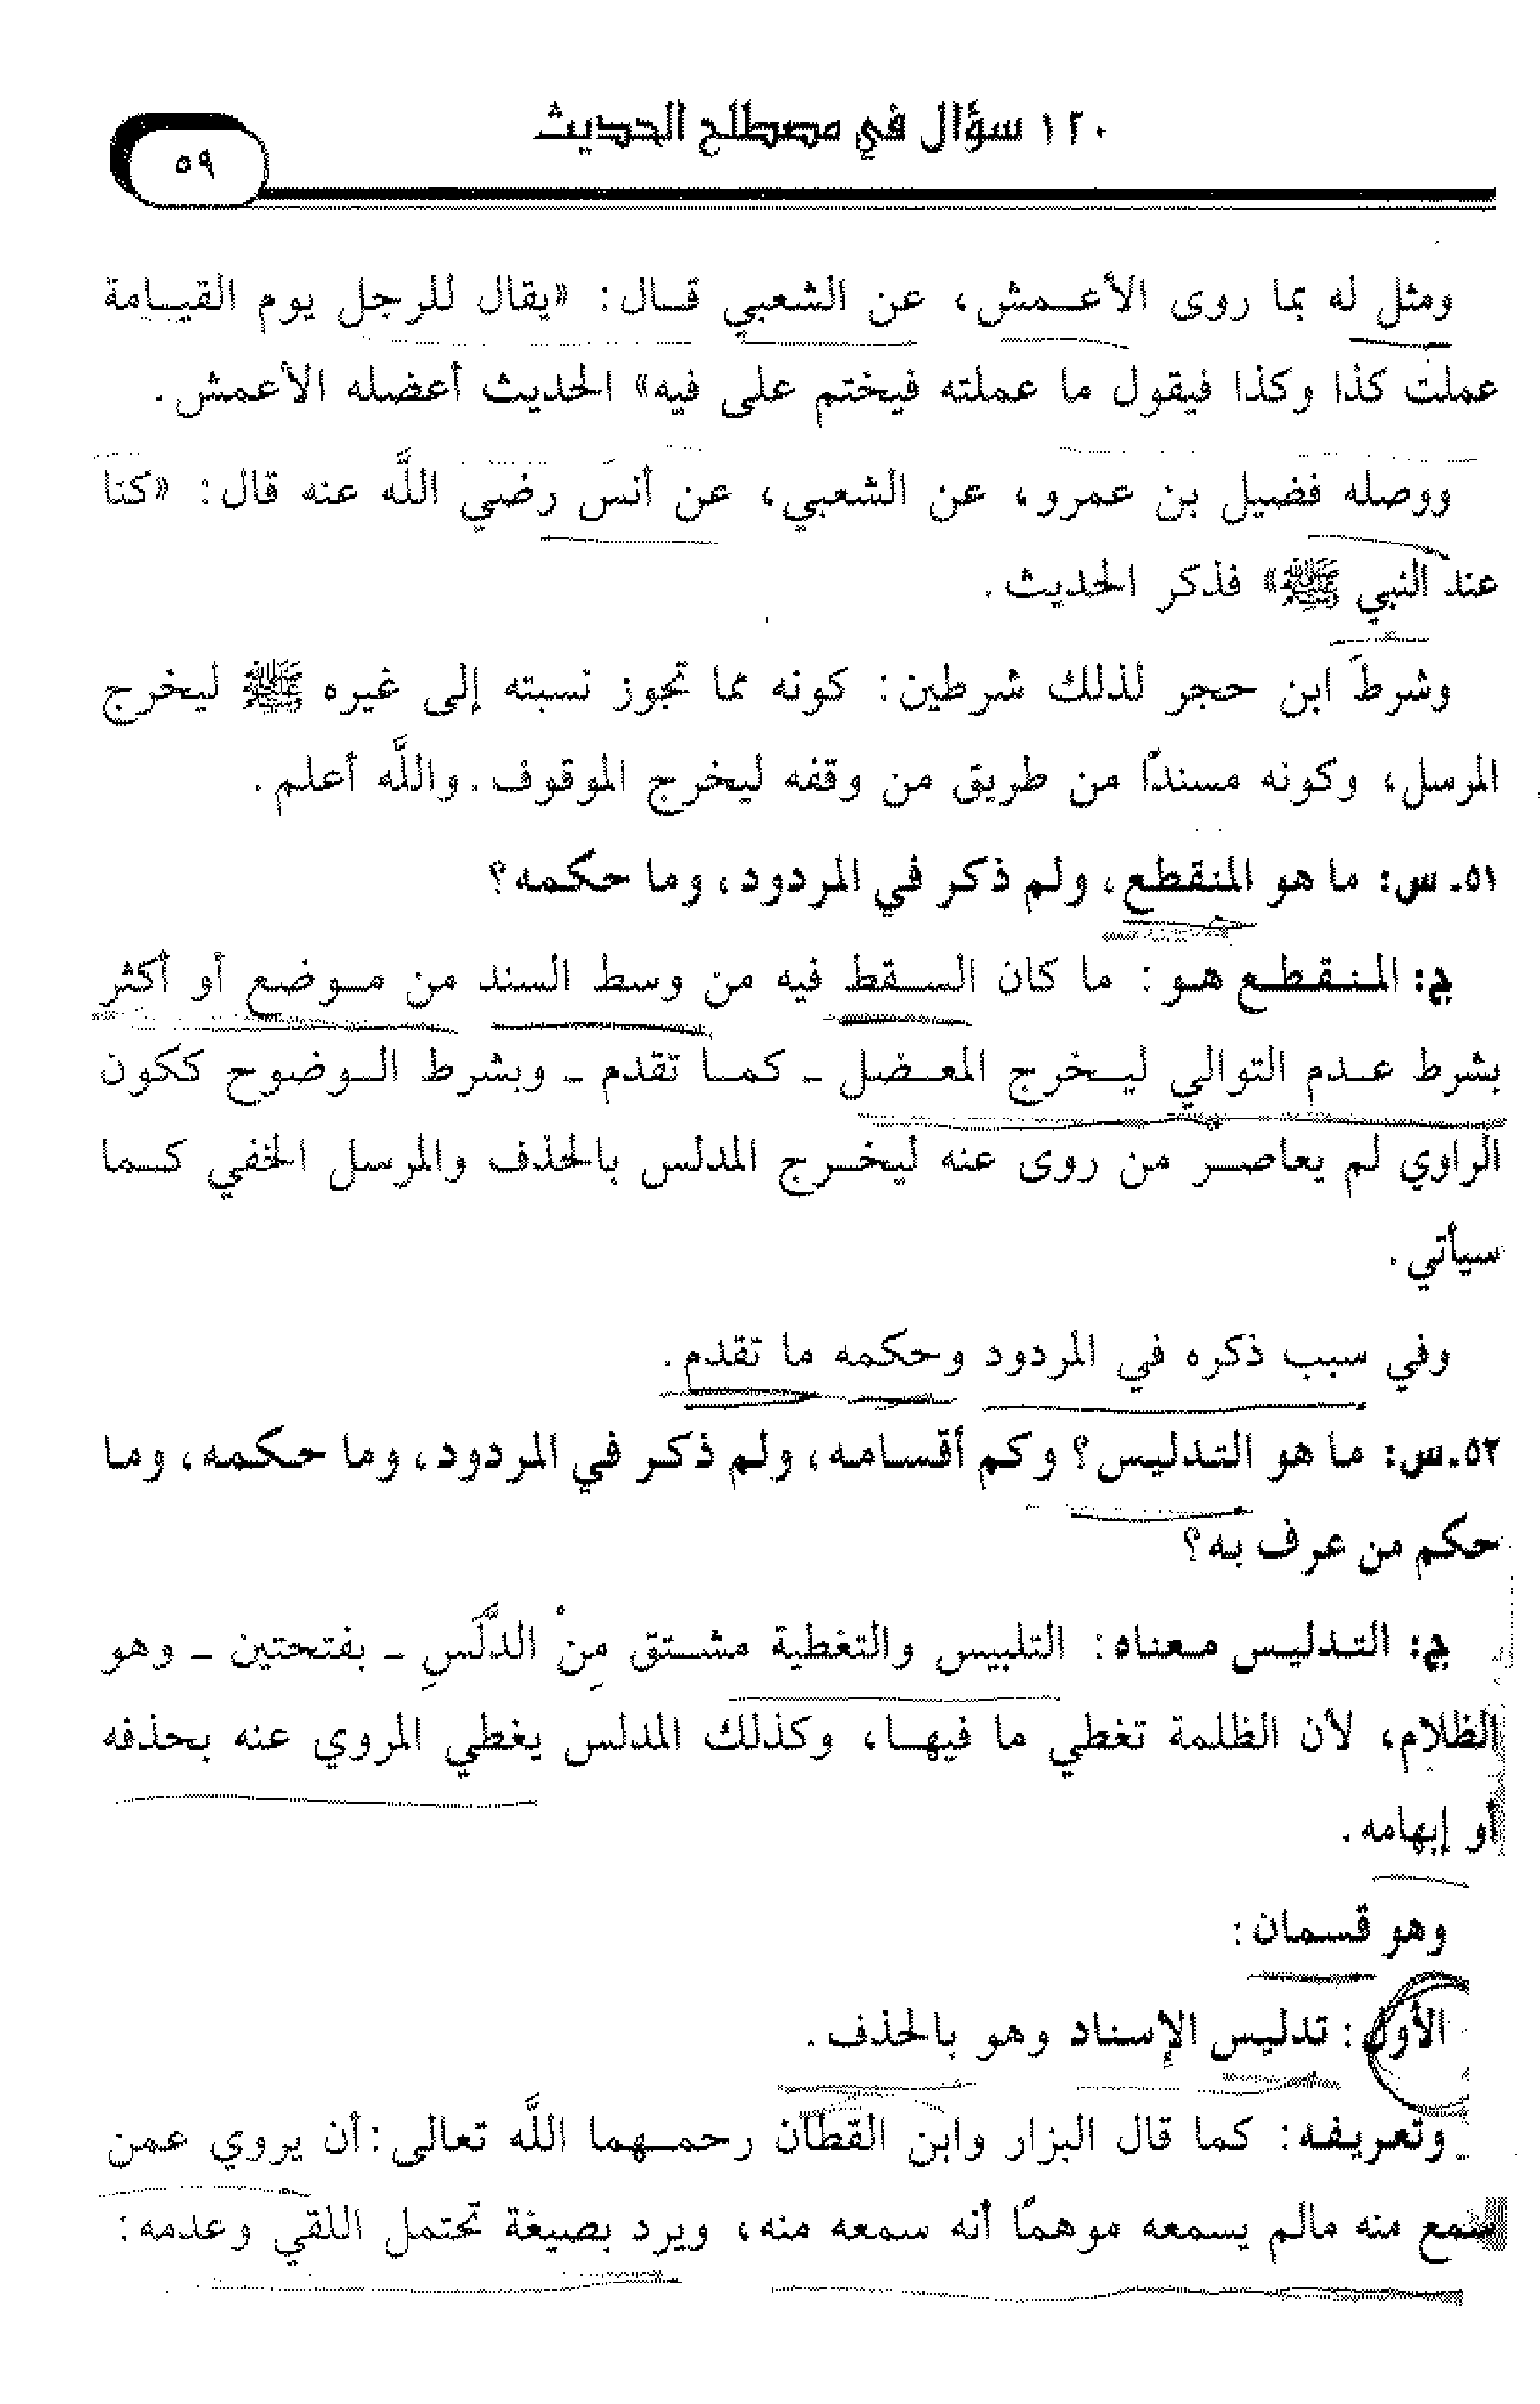 ١٢٠ سؤال في مصطلح الحديث
٥٩
ومثل له بما روى الأعمش، عن الشعبي قال: «يقال للرجل يوم القيامة
عملت كذا وكذا فيقول ما عملته فيختم على فيه» الحديث أعضله الأعمش.
ووصله فضيل بن عمرو، عن الشعبي، عن أنس رضي اللَّه عنه قال: «كنا
عند النبي ﷺ» فذكر الحديث.
وشرطَ ابن حجر لذلك شرطين: كونه مما تجوز نسبته إلى غيره ﷺ ليخرج
المرسل، وكونه مسندًا من طريق من وقفه ليخرج الموقوف. واللَّه أعلم.
٥١ـ س: ما هو المنقطع، ولم ذكر في المردود، وما حكمه؟
ج: المنقطع هو: ما كان السقط فيه من وسط السند من موضع أو أكثر
بشرط عدم التوالي ليخرج المعضل ـ كما تقدم ـ وبشرط الوضوح ككون
الراوي لم يعاصر من روى عنه ليخرج المدلس بالحذف والمرسل الخفي كما
سيأتي.
وفي سبب ذكره في المردود وحكمه ما تقدم.
٥٢ـ س: ما هو التدليس؟ وكم أقسامه، ولم ذكر في المردود، وما حكمه، وما
حكم من عرف به؟
ج: التدليس معناه: التلبيس والتغطية مشتق مِنْ الدَّلَسِ ـ بفتحتين ـ وهو
الظلام، لأن الظلمة تغطي ما فيها، وكذلك المدلس يغطي المروي عنه بحذفه
أو إبهامه.
وهو قسمان:
الأول: تدليس الإسناد وهو بالحذف.
وتعريفه: كما قال البزار وابن القطان رحمهما اللَّه تعالى: أن يروي عمن
سمع منه مالم يسمعه موهمًا أنه سمعه منه، ويرد بصيغة تحتمل اللقي وعدمه: